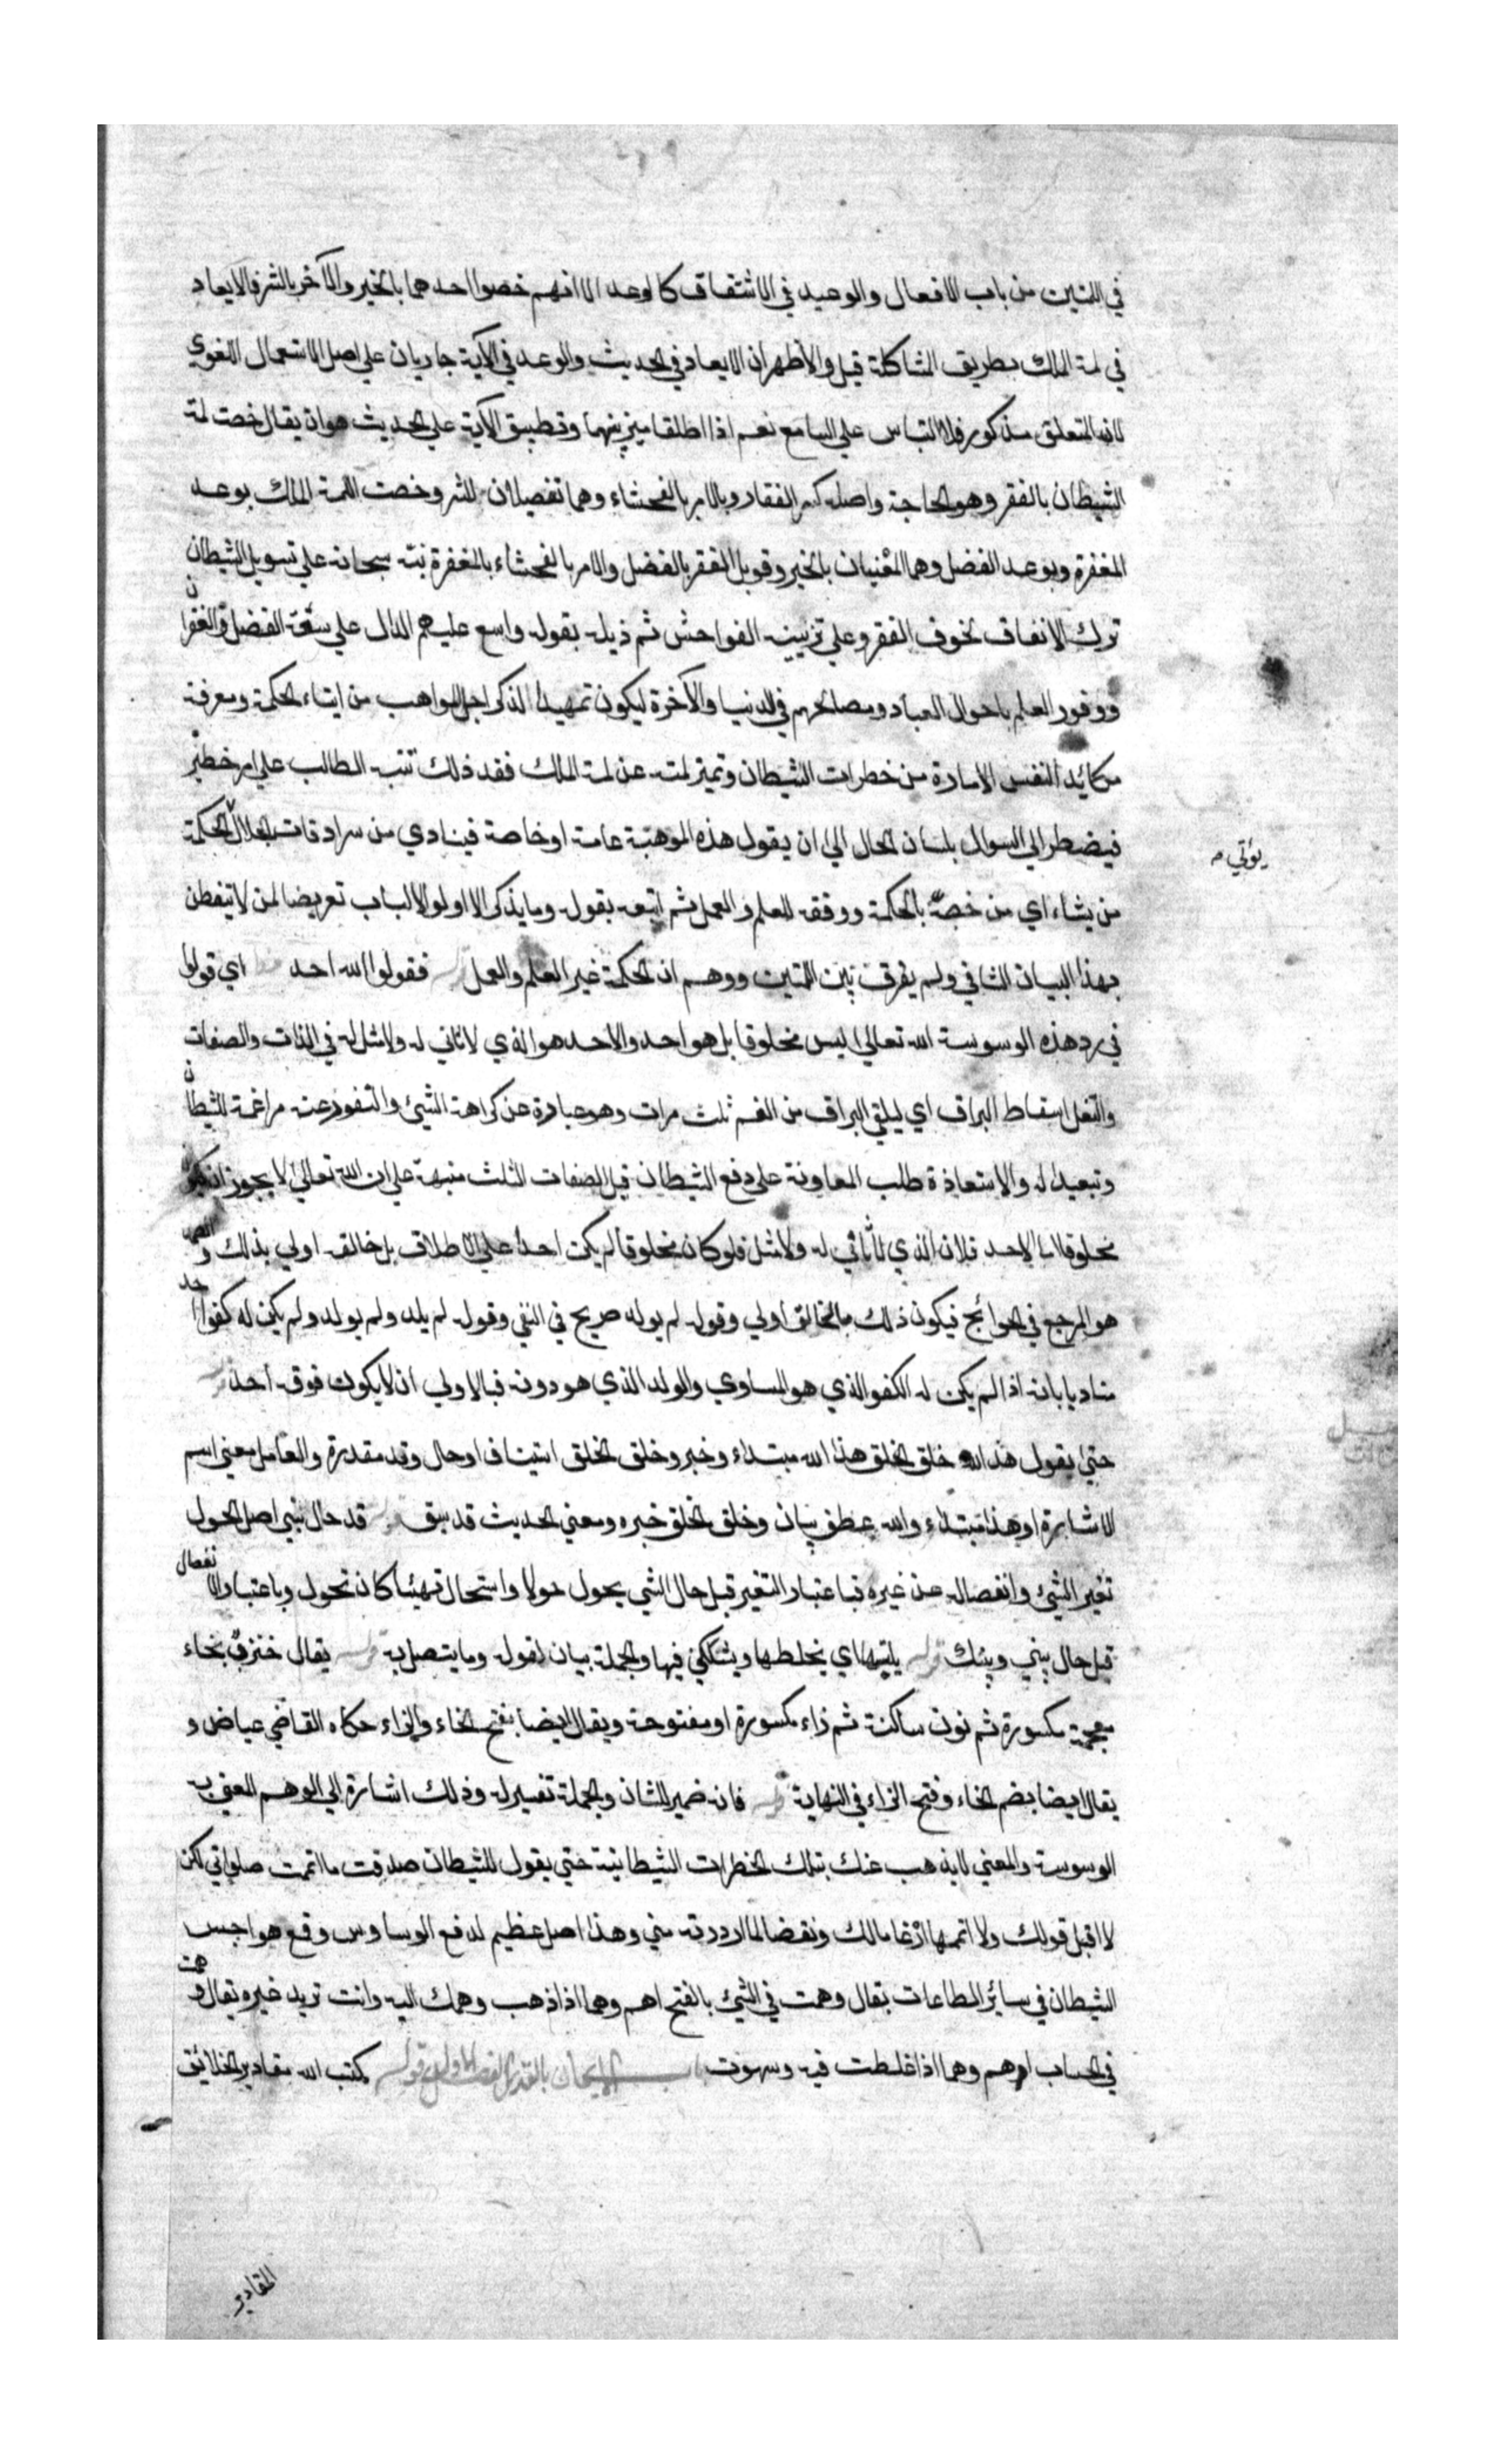 في اللمتين من باب الافعال والوعيد في الاشتقاق كالوعد الا انهم خصوا احدهما بالخير والآخر بالشر فالايعاد
في لمة الملك بطريق المشاكلة قيل والأظهر ان الايعاد في الحديث والوعد في الآية جاريان علي اصل الاستعمال اللغوي
لانه المتعلق مذكور فلا التباس علي السامع نعم اذا اطلقا ميز بينهما وتطبيق الآية علي الحديث هو ان يقال خصت لمة
الشيطان بالفقر وهو الحاجة واصله كسر الفقار وبالامر بالفحشاء وهما تفصيلان للشر وخصت اللمة الملك بوعد
المغفرة وبوعد الفضل وهما المعنيان بالخير وقوبل الفقر بالفضل والامر بالفحشاء بالمغفرة نبّه سبحانه علي تسويل الشيطان
ترك الانفاق بخوف الفقر وعلي تزيينه الفواحش ثم ذيله بقوله واسع عليم الدال علي سعة الفضل والغفران
ووفور العلم باحوال العباد ومصالحهم في الدنيا والآخرة ليكون تمهيدا لذكر اجل المواهب من ايتاء الحكمة ومعرفة
مكائد النفس الامارة من خطرات الشيطان وتميز لمته عن لمة الملك فقد ذلك تنبه الطالب علي امر خطير
فيضطر الي السوال بلسان الحال الي ان يقول هذه الموهبة عامة او خاصة فينادي من سرادقات الجلال الحكمة
يؤتي
من يشاء اي من خصّه بالحكمة ووفقه للعلم والعمل ثم اتبعه بقوله وما يذكر الا اولو الالباب تعريضا لمن لا يتفطن
بهذا البيان الشافي ولم يفرق بين اللمتين ووهم ان الحكمة غير العلم والعمل فقولوا الله احد اي قولوا
في رد هذه الوسوسة الله تعالي ليس مخلوقا بل هو احد والاحد هو الذي لا ثاني له ولا مثل له في الذات والصفات
والتفل اسقاط البزاق اي ليلق البزاق من الفم ثلث مرات وهو عبارة عن كراهة الشيئ والنفور عنه مراغمة للشيطان
وتبعيدا له والاستعاذة طلب المعاونة علي دفع الشيطان قيل الصفات الثلث منبهة علي ان الله تعالي لا يجوز ان يكون
مخلوقا اما الاحد فلان الذي لا ثاني له ولا مثل فلو كان مخلوقا لم يكن احدا علي الاطلاق بل خالقه اولي بذلك والصمد
هو المرجع في الحوائج فيكون ذلك بالخالق اولي وقوله لم يولد صريح في النفي وقوله لم يلد ولم يولد ولم يكن له كفوا احد
مناديا بانه اذا لم يكن له الكفو الذي هو المساوي والولد الذي هو دونه فبالاولي ان لا يكون فوقه احد قوله
حتي يقول هذا الله خلق الخلق هذا الله مبتداء وخبر وخلق الخلق استيناف او حال وقد مقدرة والعامل معني اسم
الاشارة او هذا مبتداء والله عطف بيان وخلق الخلق خبره ومعني الحديث قد سبق قوله قد حال بيني اصل الحول
تغير الشيئ وانفصاله عن غيره فباعتبار التغير قيل حال الشي يحول حولا واستحال تهيئا كان تحول وباعتبار الانفصال
قيل حال بيني وبينك قوله يلبسها اي يخلطها ويشككني فيها والجملة بيان لقوله وما يتصل به قوله يقال خنزب بخاء
معجمة مكسورة ثم نون ساكنة ثم زاء مكسورة او مفتوحة ويقال ايضا بفتح الخاء والزاء حكاه القاضي عياض و
يقال ايضا بضم الخاء وفتح الزاء في النهاية قوله فانه ضمير للشان والجملة تفسير له وذلك اشارة الي الوهم المعني به
الوسوسة والمعني لا يذهب عنك تلك الخطرات الشيطانية حتي يقول للشيطان صدقت ما اتممت صلواتي لكن
لا اقبل قولك ولا اتمها ارغاما لك ونقضا لما اردته مني وهذا اصل عظيم لدفع الوساوس وقمع هواجس
الشيطان في سائر الطاعات يقال وهمت في الشيئ بالفتح اهم وهما اذا ذهب وهمك اليه وانت تريد غيره يقال وهمت
في الحساب اوهم وهما اذا غلطت فيه وسهوت باب الايمان بالقدر الفصل الاول قوله كتب الله مقادير الخلائق
المقادير